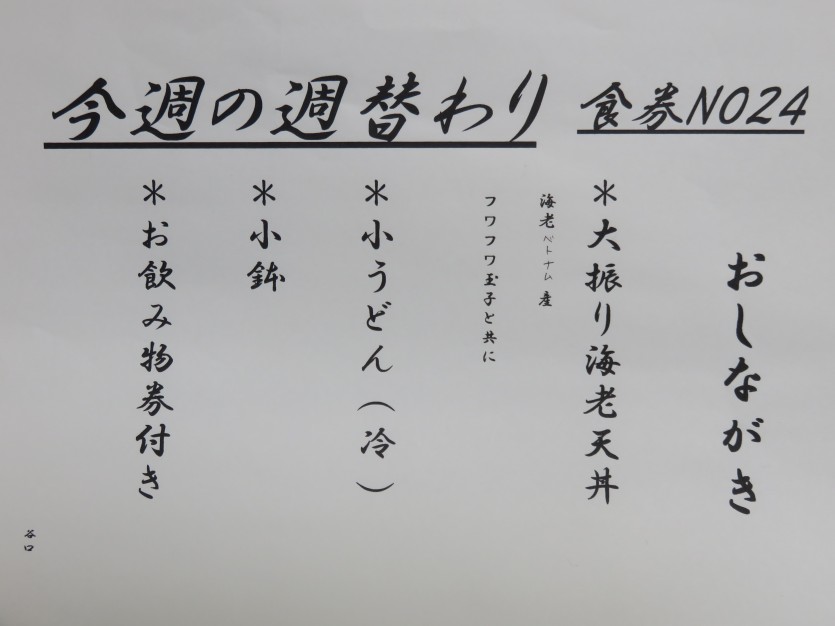 今週の週替わり
食券NO24
おしながき
＊大振り海老天丼
海老ベトナム産
フワフワ玉子と共に
＊小うどん（冷）
＊小鉢
＊お飲み物券付き
谷口